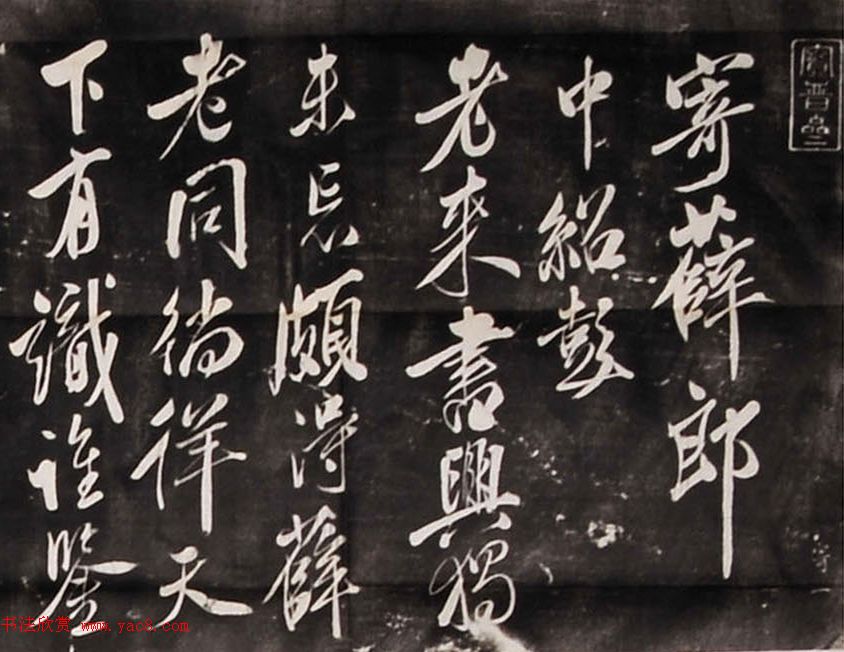 寶晉
寄薛郎
中紹彭
老來書興獨
未忘頗得薛
老同徜徉天
下有識誰鑒
书法欣赏 www.yac8.com